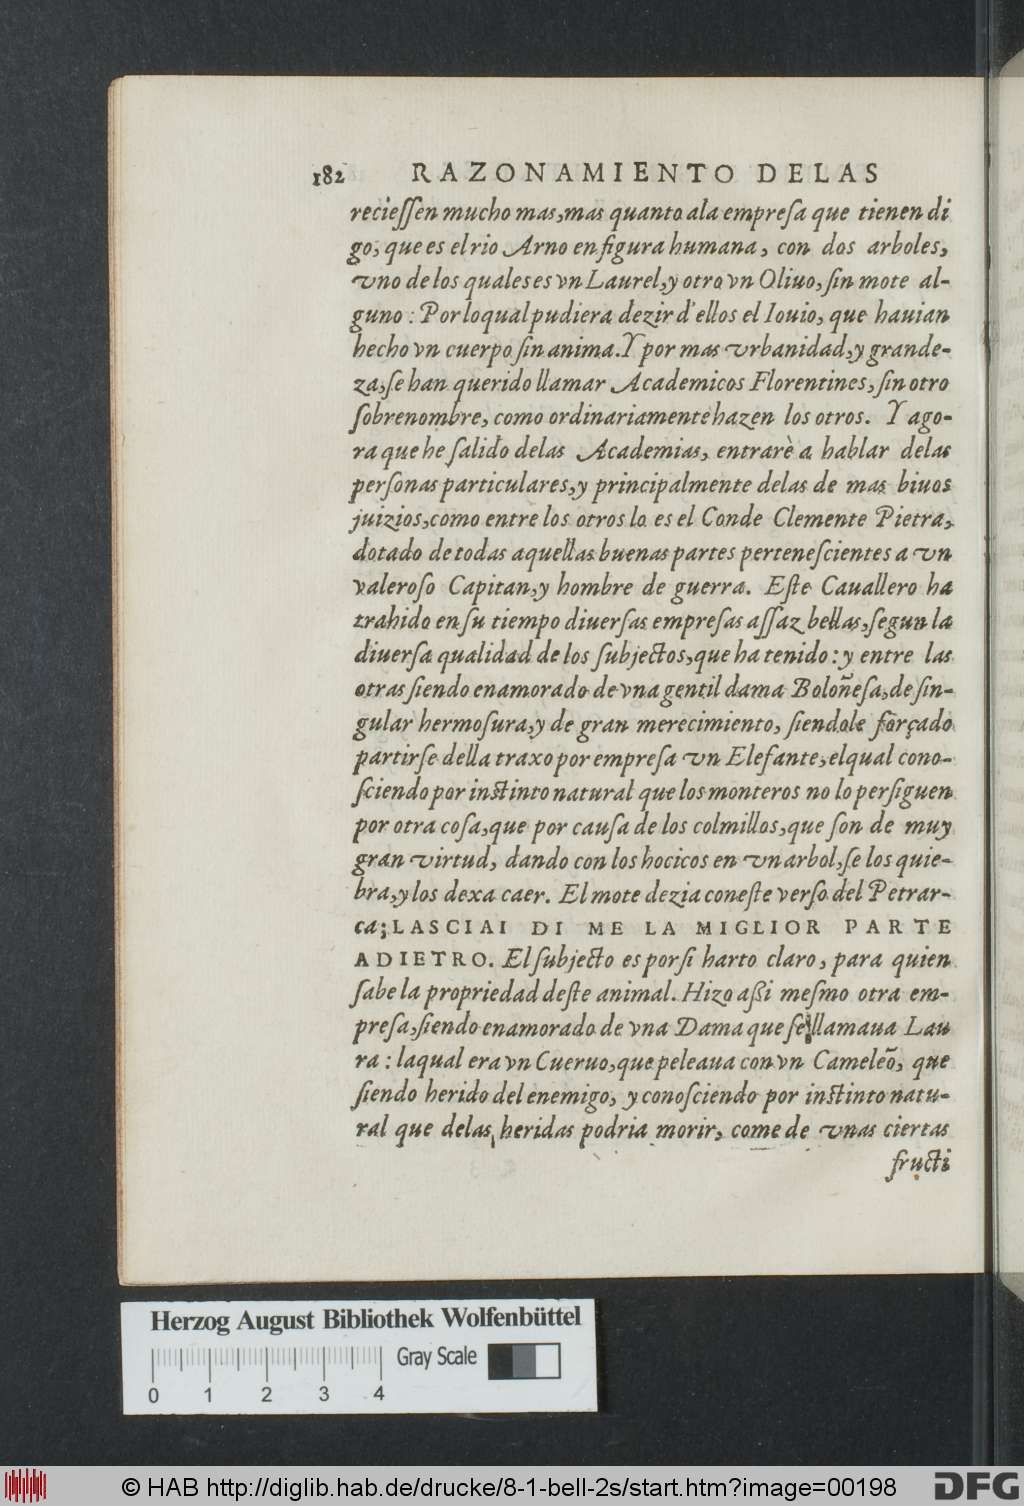 182 RAZONAMIENTO DELAS
recieſſen mucho mas, mas quanto ala empreſa que tienen di
go, que es el rio Arno en figura humana, con dos arboles,
vno de los quales es vn Laurel, y otro vn Oliuo, ſin mote al-
guno: Por lo qual pudiera dezir d'ellos el Iouio, que hauian
hecho vn cuerpo ſin anima. Y por mas vrbanidad, y grande-
za, ſe han querido llamar Academicos Florentines, ſin otro
ſobrenombre, como ordinariamente hazen los otros. Y ago-
ra que he ſalido delas Academias, entrarè a hablar delas
perſonas particulares, y principalmente delas de mas biuos
juizios, como entre los otros lo es el Conde Clemente Pietra,
dotado de todas aquellas buenas partes perteneſcientes a vn
valeroſo Capitan, y hombre de guerra. Eſte Cauallero ha
trahido en ſu tiempo diuerſas empreſas aſſaz bellas, ſegun la
diuerſa qualidad de los ſubjectos, que ha tenido: y entre las
otras ſiendo enamorado de vna gentil dama Boloñeſa, de ſin-
gular hermoſura, y de gran merecimiento, ſiendole forçado
partirſe della traxo por empreſa vn Elefante, elqual cono-
ſciendo por inſtinto natural que los monteros no lo perſiguen
por otra coſa, que por cauſa de los colmillos, que ſon de muy
gran virtud, dando con los hocicos en vn arbol, ſe los quie-
bra, y los dexa caer. El mote dezia con eſte verſo del Petrar-
ca; LASCIAI DI ME LA MIGLIOR PARTE
ADIETRO. El ſubjecto es por ſi harto claro, para quien
ſabe la propriedad deſte animal. Hizo aßi meſmo otra em-
preſa, ſiendo enamorado de vna Dama que ſe llamaua Lau
ra: laqual era vn Cueruo, que peleaua con vn Cameleõ, que
ſiendo herido del enemigo, y conoſciendo por inſtinto natu-
ral que delas heridas podria morir, come de vnas ciertas
fructi
Herzog August Bibliothek Wolfenbüttel
Gray Scale
0 1 2 3 4
© HAB http://diglib.hab.de/drucke/8-1-bell-2s/start.htm?image=00198
DFG